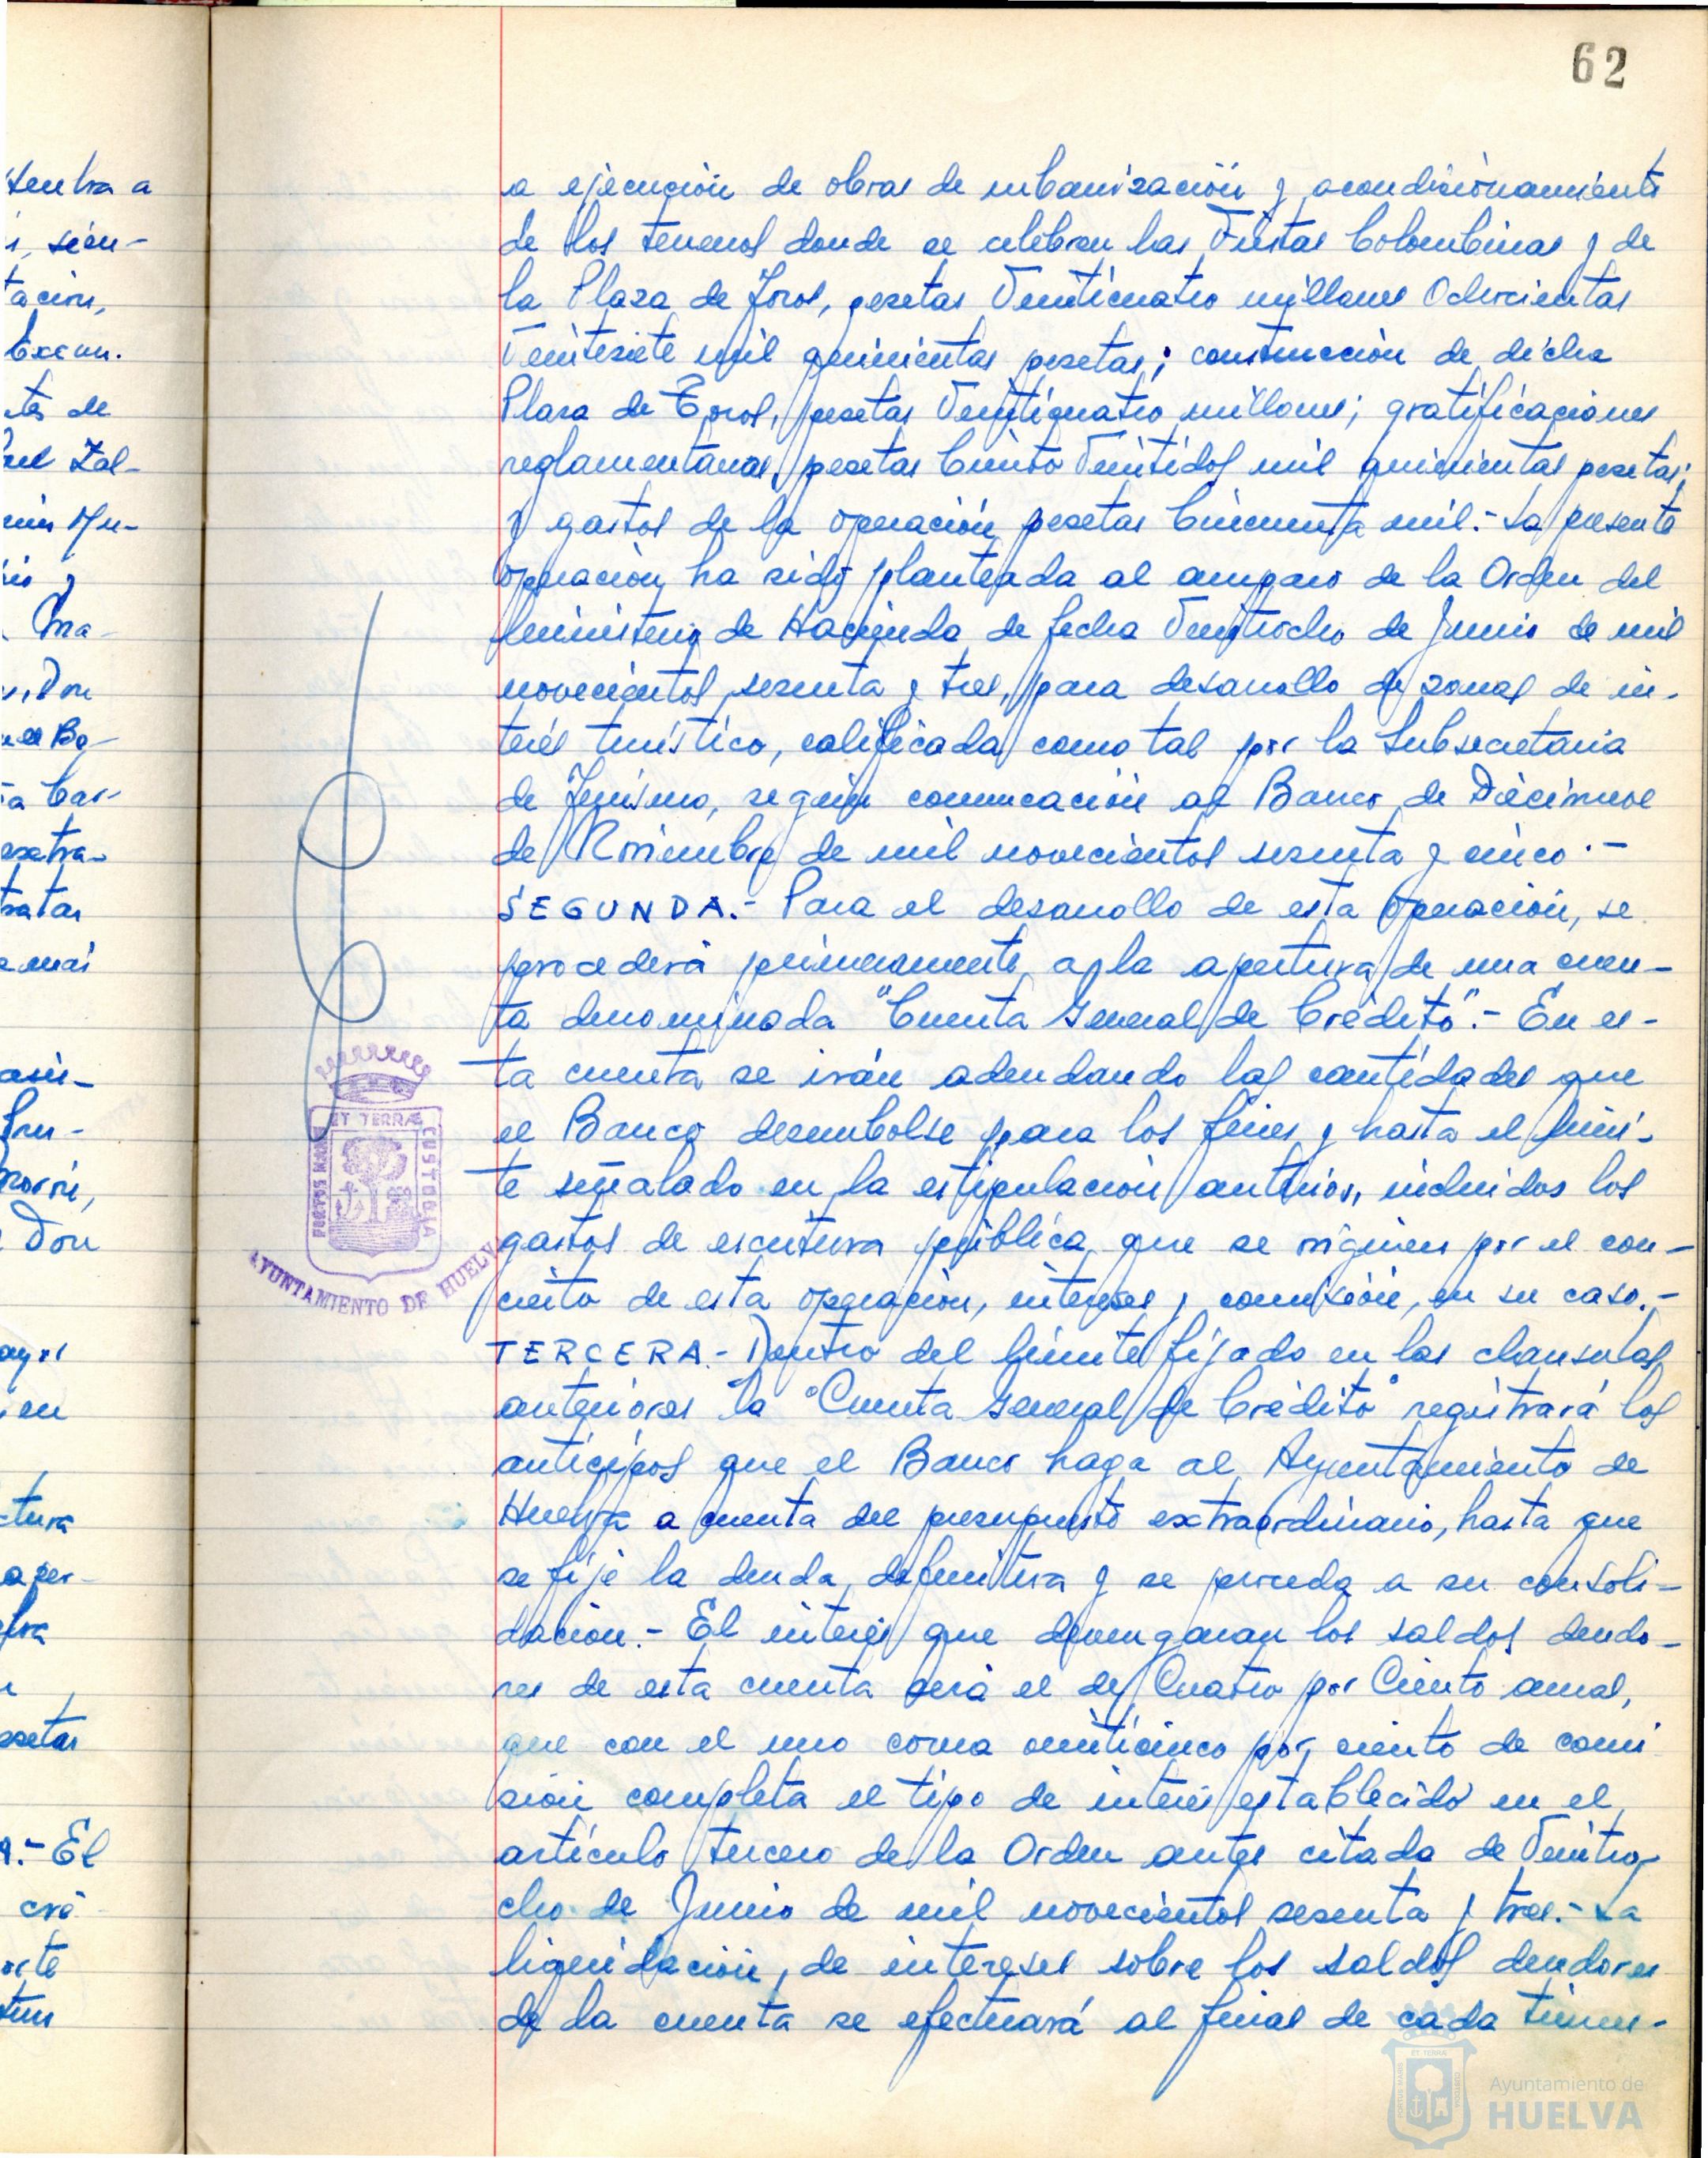 62
a ejecución de obras de urbanización y acondicionamiento
de los terrenos donde se celebran las Fiestas Colombinas y de
la Plaza de Toros, pesetas Veinticuatro millones Ochocientas
Veintesiete mil quinientas pesetas; construcción de dicha
Plaza de Toros, pesetas Veinticuatro millones; gratificaciones
reglamentarias, pesetas Ciento Veintidos mil quinientas pesetas;
y gastos de la operación pesetas Cincuenta mil.- La presente
operación ha sido planteada al amparo de la Orden del
Ministerio de Hacienda de fecha Veintiocho de Junio de mil
novecientos sesenta y tres, para desarrollo de zonas de in-
terés turístico, calificada como tal por la Subsecretaria
de Turismo, según comunicación al Banco de Diecinueve
de Noviembre de mil novecientos sesenta y cinco.-
SEGUNDA.- Para el desarrollo de esta operación, se
procederá primeramente a la apertura de una cuen-
ta denominada "Cuenta General de Crédito".- En es-
ta cuenta se irán adeudando las cantidades que
el Banco desembolse para los fines y hasta el lími-
te señalado en la estipulación anterior, incluidos los
gastos de escritura pública que se originen por el con-
cierto de esta operación, intereses y comisión, en su caso.-
TERCERA.- Dentro del límite fijado en las clausulas
anteriores la "Cuenta General de Crédito" registrará los
anticipos que el Banco haga al Ayuntamiento de
Huelva a cuenta del presupuesto extraordinario, hasta que
se fije la deuda definitiva y se proceda a su consoli-
dación.- El interés que devengaran los saldos deudo-
res de esta cuenta será el de Cuatro por Ciento anual,
que con el uno coma veinticinco por ciento de comi
sión completa el tipo de interés establecido en el
artículo tercero de la Orden antes citada de Veintio-
cho de Junio de mil novecientos sesenta y tres.- La
liquidación de intereses sobre los saldos deudores
de la cuenta se efectuará al final de cada trimes-
PORTUS MARIS ET TERRÆ CUSTODIA
AYUNTAMIENTO DE HUELV
tentra a
sien-
tación,
Excm.
tes de
Zal-
Ma-
Don
Bo-
a Car-
tratar
Don
en
ctura
aper-
esetas
A.- El
Ayuntamiento de
HUELVA